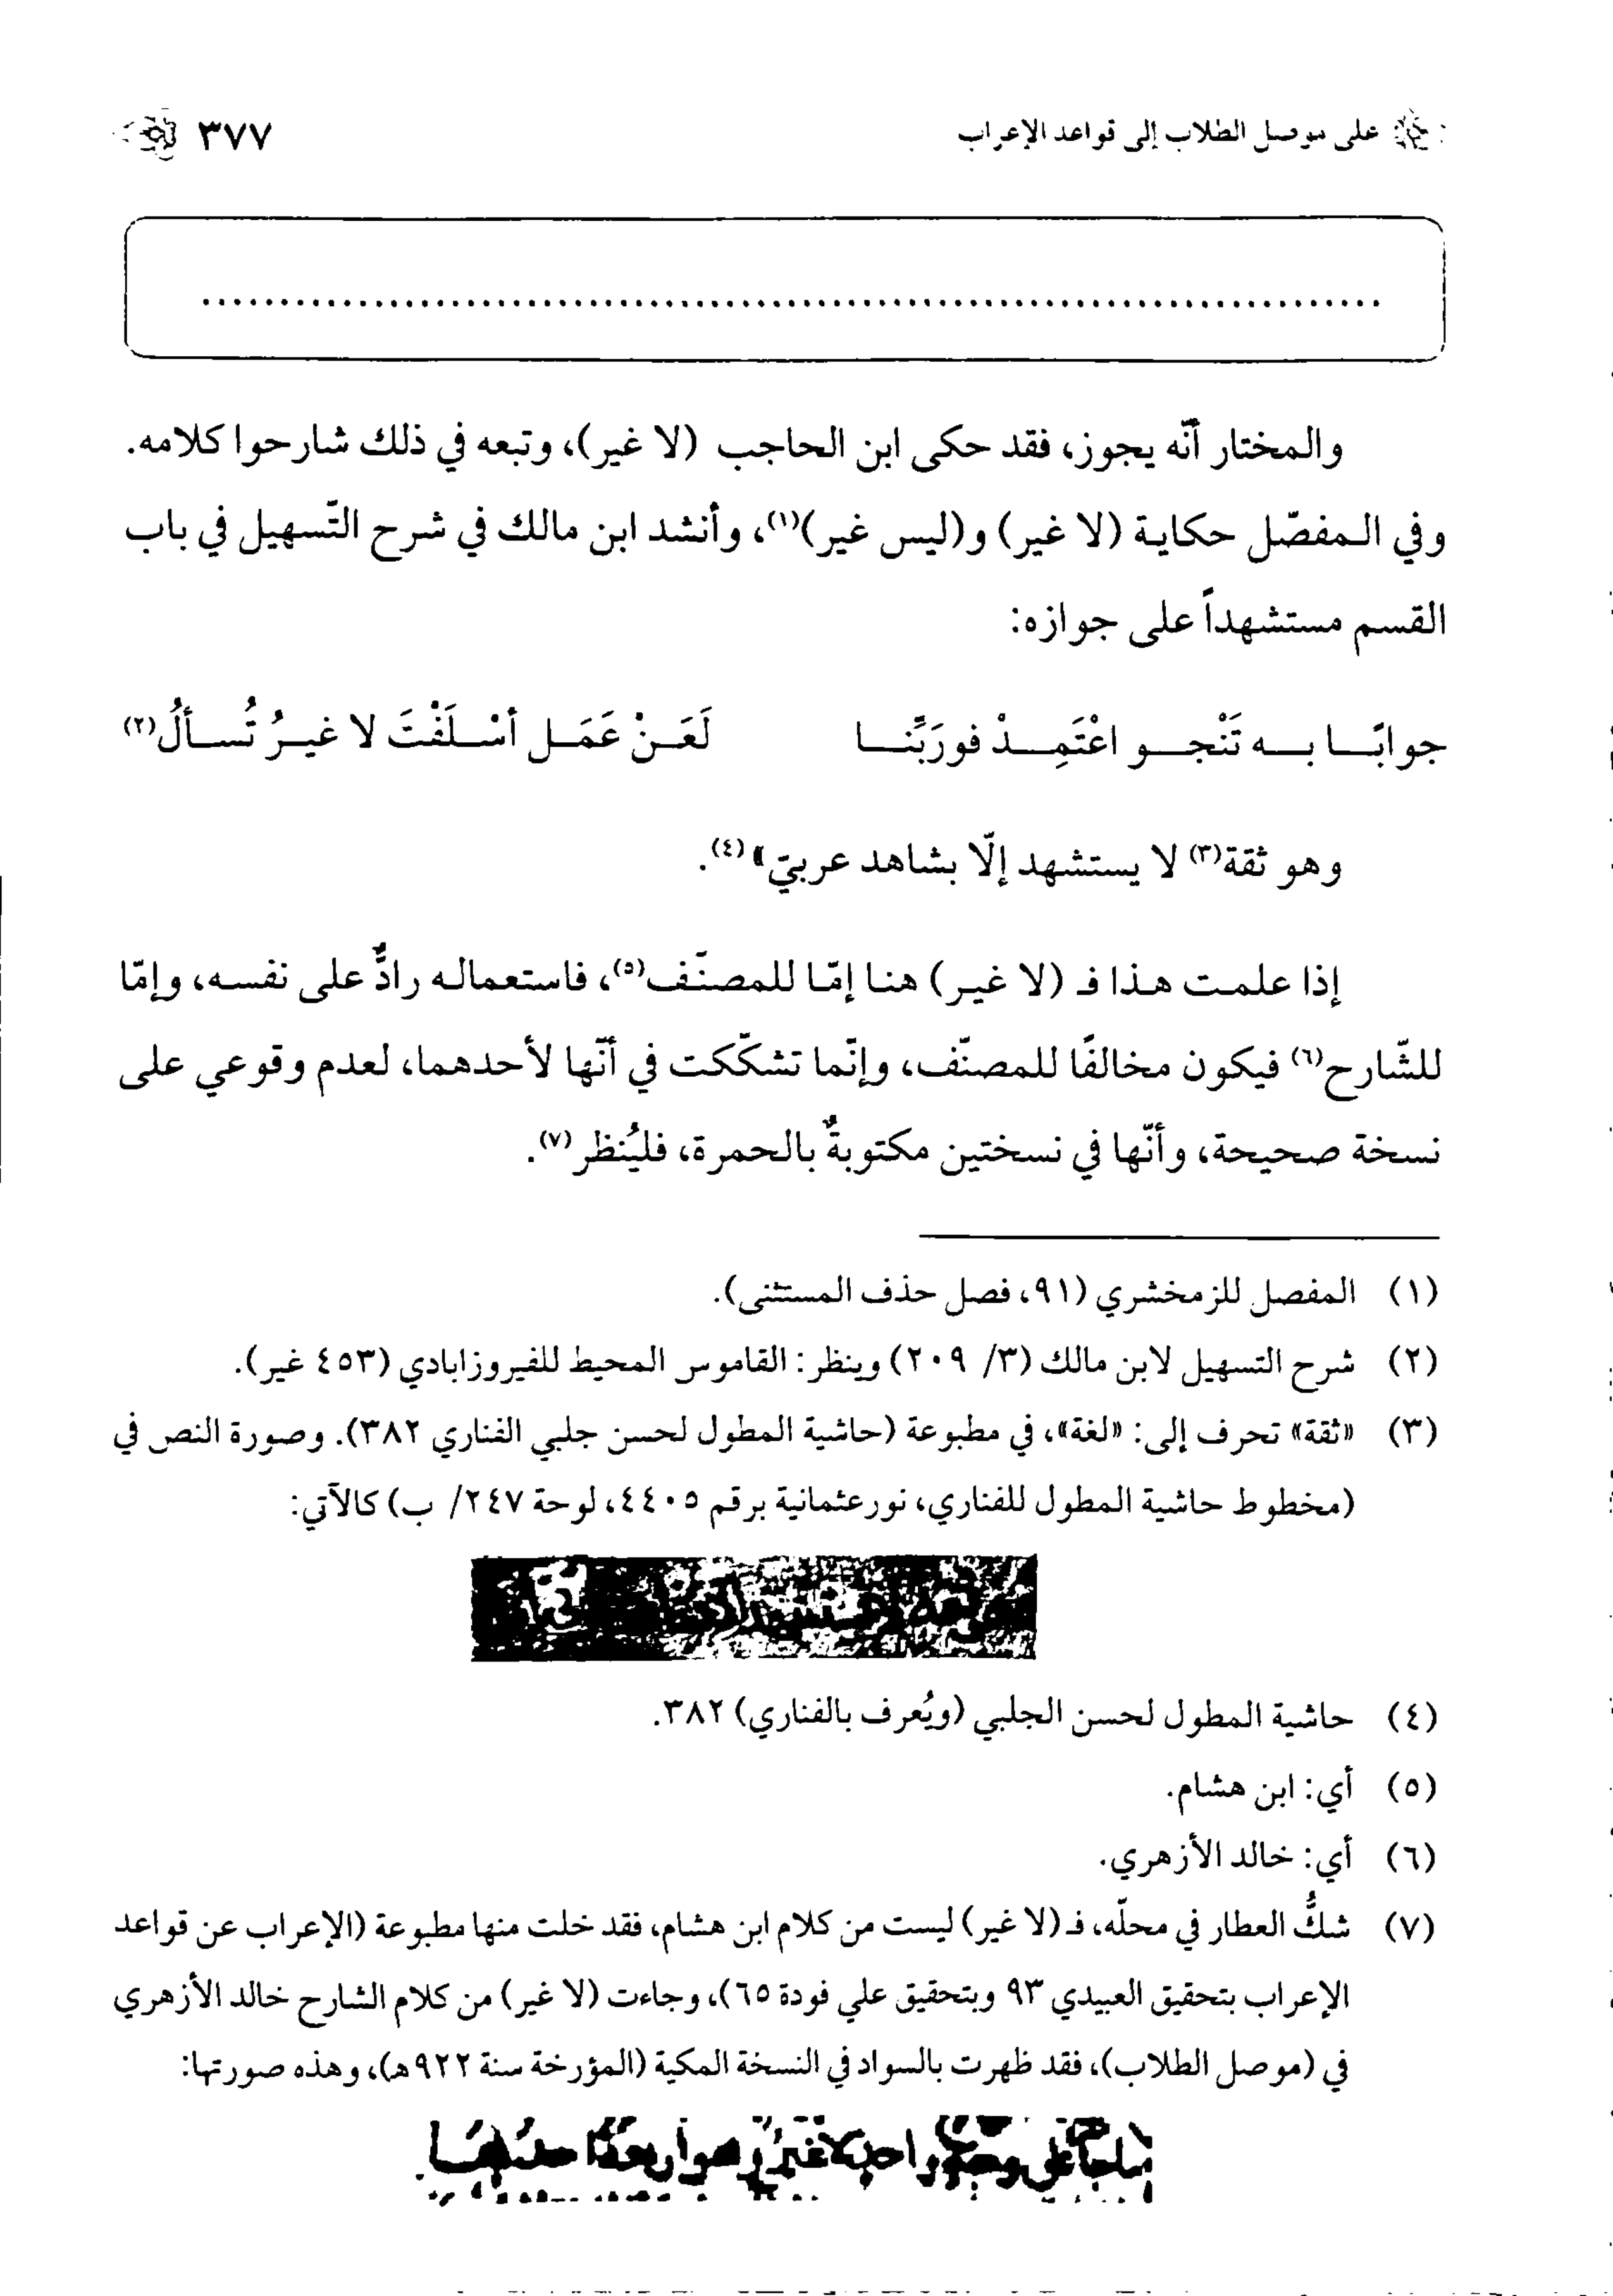 على موصل الطلاب إلى قواعد الإعراب ٣٧٧
والمختار أنّه يجوز، فقد حكى ابن الحاجب (لا غير)، وتبعه في ذلك شارحوا كلامه.
وفي المفصّل حكاية (لا غير) و(ليس غير)(١)، وأنشد ابن مالك في شرح التّسهيل في باب
القسم مستشهداً على جوازه:
جوابًا به تَنْجو اعْتَمِدْ فورَبِّنا لَعَنْ عَمَل أسْلَفْتَ لا غيرُ تُسألُ(٢)
وهو ثقة(٣) لا يستشهد إلّا بشاهد عربيّ»(٤).
إذا علمت هذا فـ (لا غير) هنا إمّا للمصنّف(٥)، فاستعماله رادٌّ على نفسه، وإمّا
للشّارح(٦) فيكون مخالفًا للمصنّف، وإنّما تشكّكت في أنّها لأحدهما، لعدم وقوعي على
نسخة صحيحة، وأنّها في نسختين مكتوبةٌ بالحمرة، فليُنظر(٧).
(١) المفصل للزمخشري (٩١، فصل حذف المستثنى).
(٢) شرح التسهيل لابن مالك (٣/ ٢٠٩) وينظر: القاموس المحيط للفيروزابادي (٤٥٣ غير).
(٣) «ثقة» تحرف إلى: «لغة»، في مطبوعة (حاشية المطول لحسن جلبي الفناري ٣٨٢). وصورة النص في
(مخطوط حاشية المطول للفناري، نورعثمانية برقم ٤٤٠٥، لوحة ٢٤٧/ ب) كالآتي:
(٤) حاشية المطول لحسن الجلبي (ويُعرف بالفناري) ٣٨٢.
(٥) أي: ابن هشام.
(٦) أي: خالد الأزهري.
(٧) شكُّ العطار في محلّه، فـ (لا غير) ليست من كلام ابن هشام، فقد خلت منها مطبوعة (الإعراب عن قواعد
الإعراب بتحقيق العبيدي ٩٣ وبتحقيق علي فودة ٦٥)، وجاءت (لا غير) من كلام الشارح خالد الأزهري
في (موصل الطلاب)، فقد ظهرت بالسواد في النسخة المكية (المؤرخة سنة ٩٢٢هـ)، وهذه صورتها: